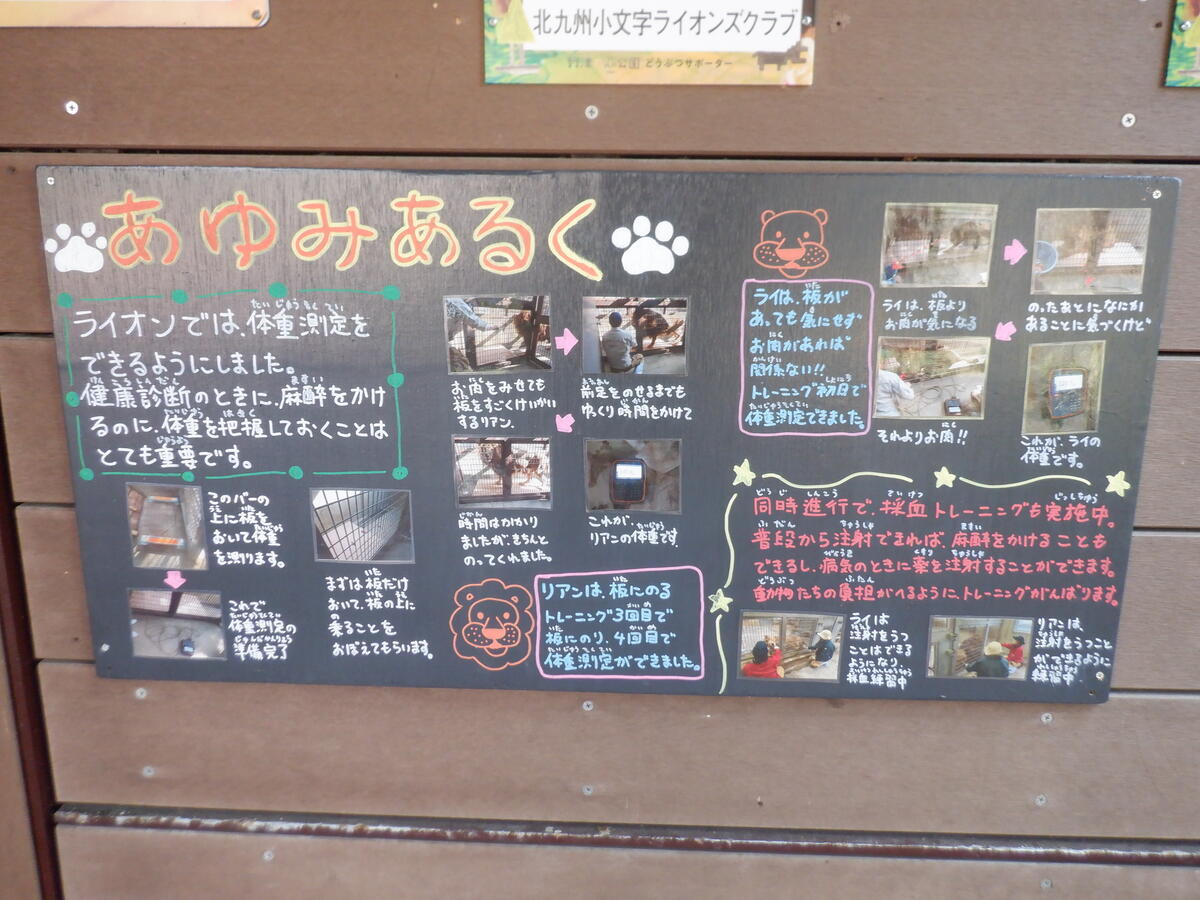 北九州小文字ライオンズクラブ
公園 どうぶつサポーター
あゆみあるく
ライオンでは、体重測定を
できるようにしました。
健康診断のときに、麻酔をかけ
るのに、体重を把握しておくことは
とても重要です。
このバーの
上に板を
おいて体重
を測ります。
これで
体重測定の
準備完了
まずは板だけ
おいて、板の上に
乗ることを
おぼえてもらいます。
お肉をみせても
板をすごくけいかい
するリアン。
前足をのせるまでも
ゆっくり時間をかけて
時間はかかり
ましたが、きちんと
のってくれました。
これが、
リアンの体重です。
リアンは、板にのる
トレーニング3回目で
板にのり、4回目で
体重測定ができました。
ライは、板が
あっても気にせず
お肉があれば
関係ない!!
トレーニング初日で
体重測定できました。
ライは、板より
お肉が気になる
のったあとになにか
あることに気づくけど
それよりお肉!!
これが、ライの
体重です。
同時進行で、採血トレーニングも実施中。
普段から注射できれば、麻酔をかけることも
できるし、病気のときに薬を注射することができます。
動物たちの負担がへるように、トレーニングがんばります。
ライは
注射をうつ
ことはできる
ようになり、
採血練習中
リアンは、
注射をうつこと
ができるように
練習中